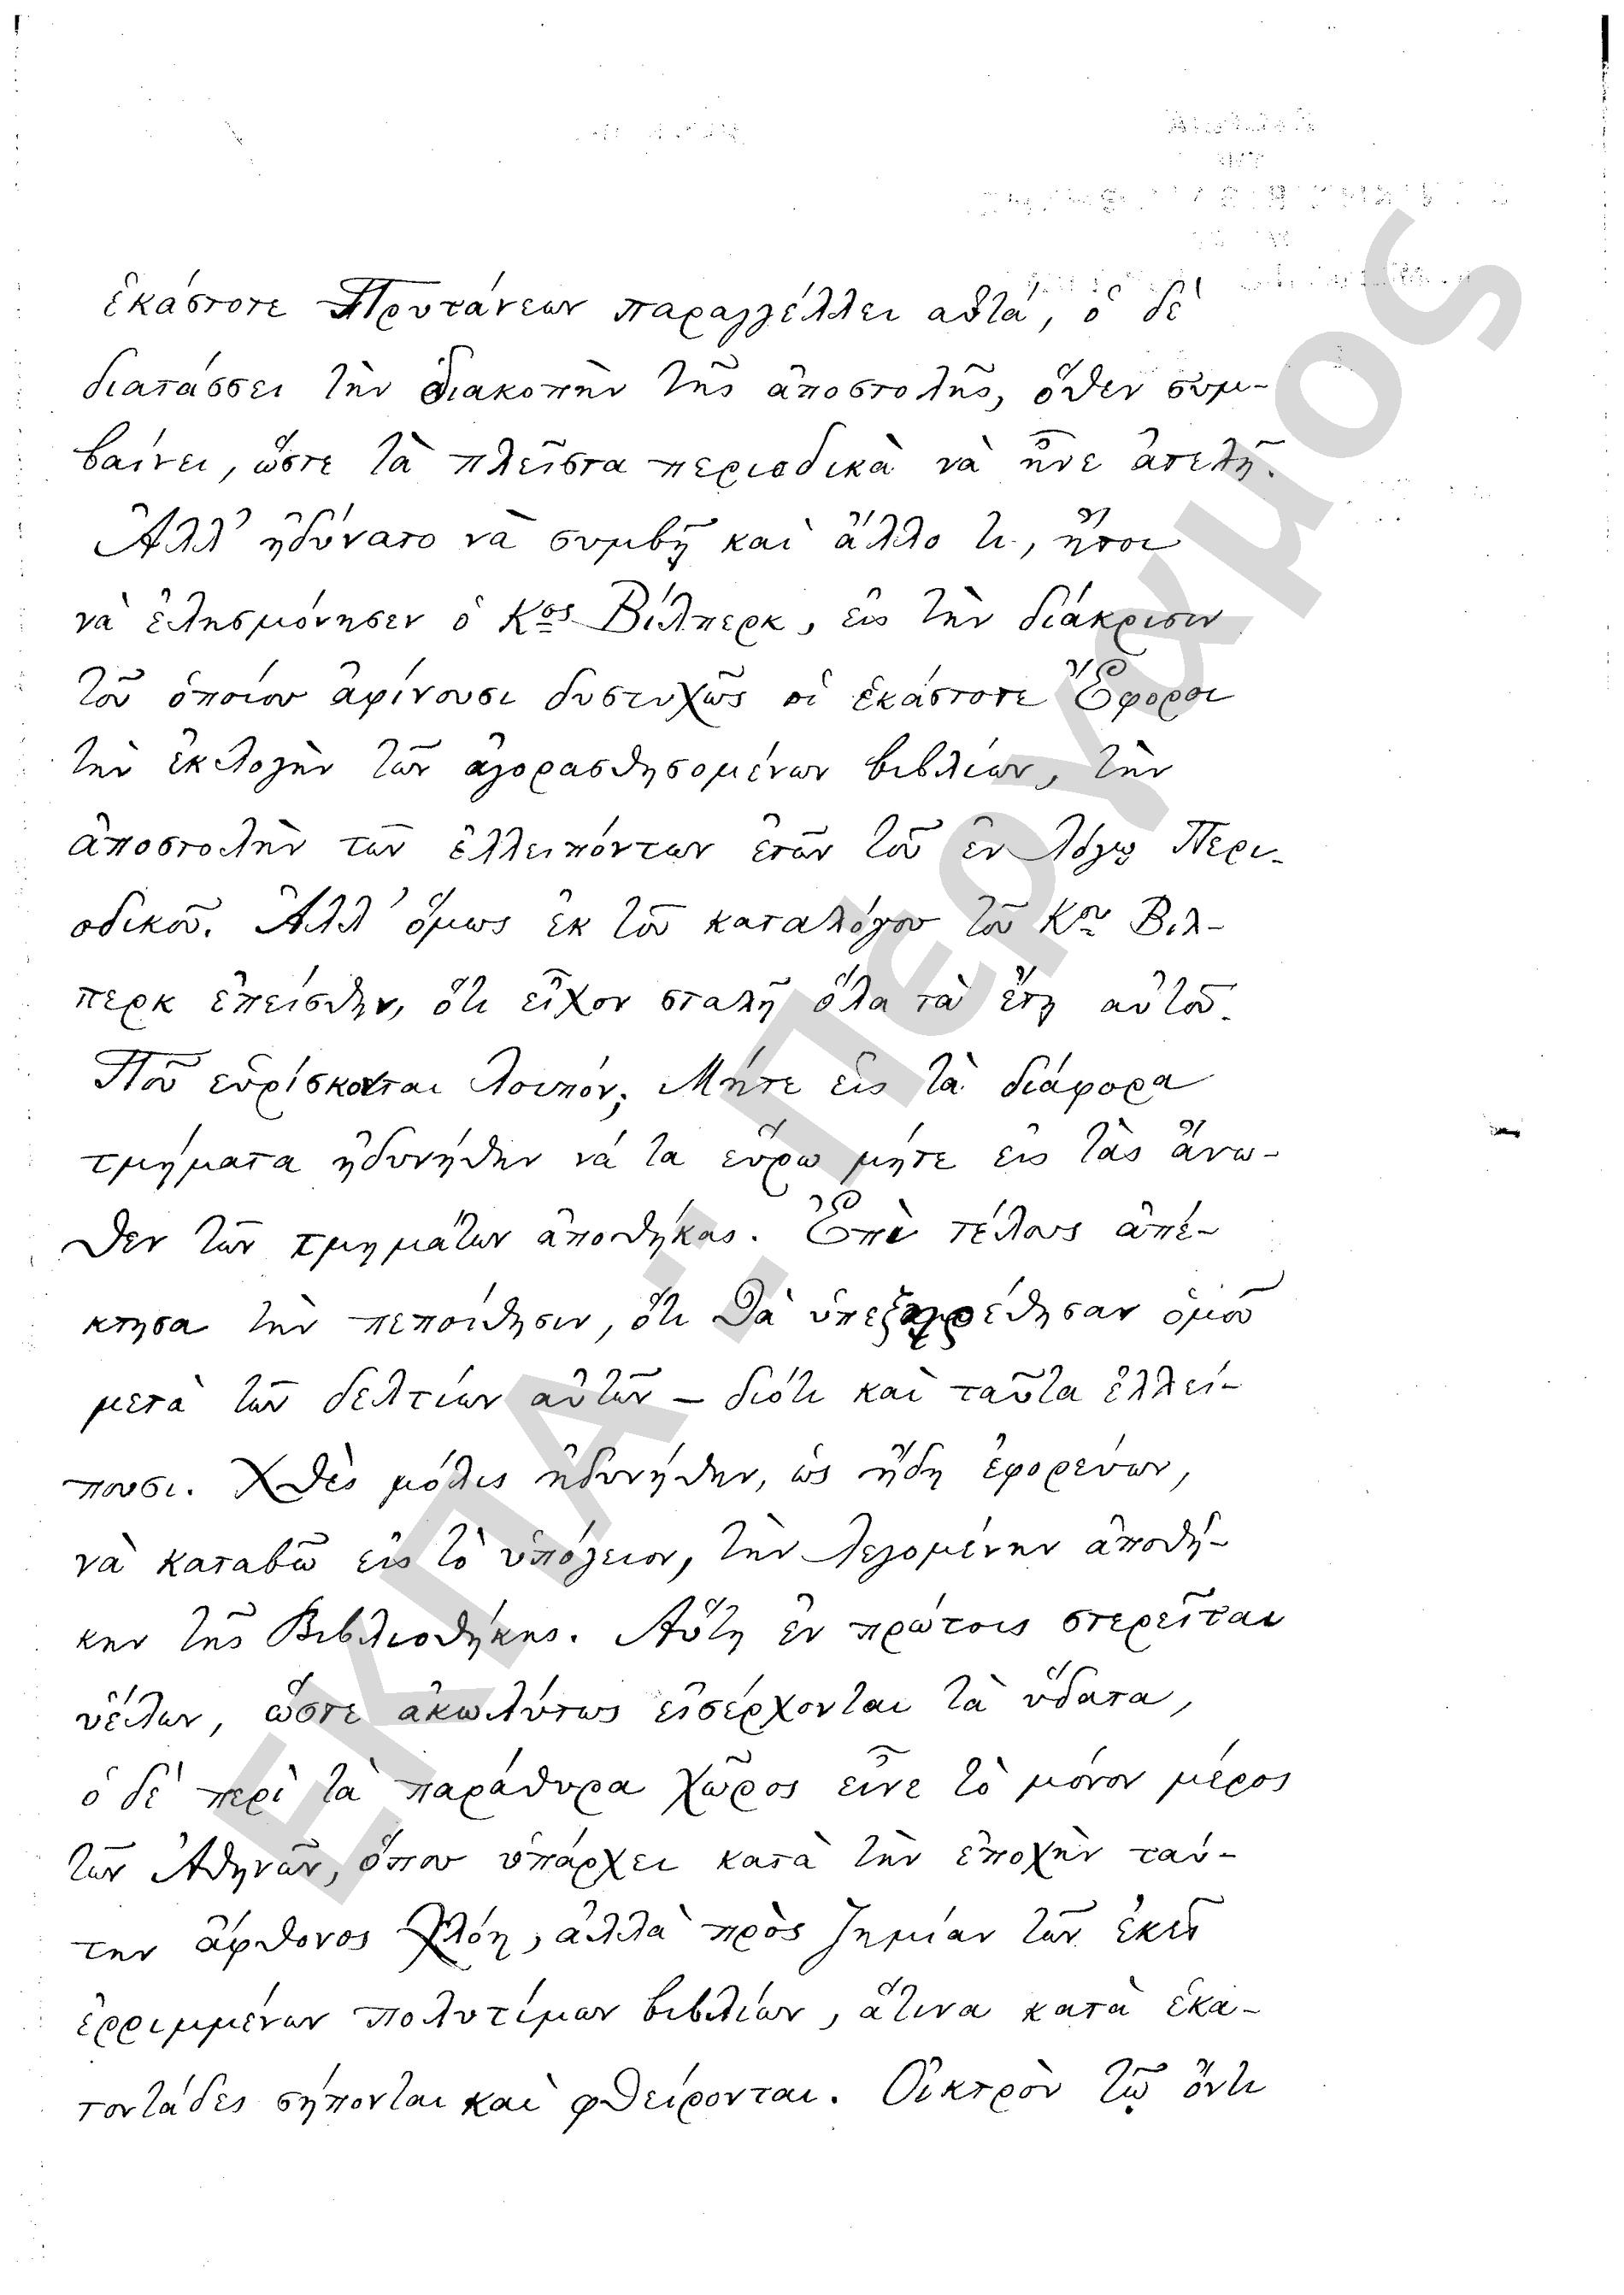 ἑκάστοτε Πρυτάνεων παραγγέλλει αὐτά, ὁ δὲ
διατάσσει τὴν διακοπὴν τῆς ἀποστολῆς, ὅθεν συμ-
βαίνει, ὥστε τὰ πλεῖστα περιοδικὰ νὰ ἦνε ἀτελῆ.
Ἀλλ' ἠδύνατο νὰ συμβῇ καὶ ἄλλο τι, ἤτοι
νὰ ἐλησμόνησεν ὁ Κος Βίλπερκ, εἰς τὴν διάκρισιν
τοῦ ὁποίου ἀφίνουσι δυστυχῶς οἱ ἑκάστοτε Ἔφοροι
τὴν ἐκλογὴν τῶν ἀγορασθησομένων βιβλίων, τὴν
ἀποστολὴν τῶν ἐλλειπόντων ἐτῶν τοῦ ἐν λόγῳ Περι-
οδικοῦ. Ἀλλ' ὅμως ἐκ τοῦ καταλόγου τοῦ Κου Βιλ-
περκ ἐπείσθην, ὅτι εἶχον σταλῆ ὅλα τὰ ἔτη αὐτοῦ.
Ποῦ εὑρίσκονται λοιπόν; Μήτε εἰς τὰ διάφορα
τμήματα ἠδυνήθην νά τα εὕρω μήτε εἰς τὰς ἄνω-
θεν τῶν τμημάτων ἀποθήκας. Ἐπὶ τέλους ἀπέ-
κτησα τὴν πεποίθησιν, ὅτι θὰ ὑπεξῃρέθησαν ὁμοῦ
μετὰ τῶν δελτίων αὐτῶν – διότι καὶ ταῦτα ἐλλεί-
πουσι. Χθὲς μόλις ἠδυνήθην, ὡς ἤδη ἐφορεύων,
νὰ καταβῶ εἰς τὸ ὑπόγειον, τὴν λεγομένην ἀποθή-
κην τῆς Βιβλιοθήκης. Αὕτη ἐν πρώτοις στερεῖται
ὑέλων, ὥστε ἀκωλύτως εἰσέρχονται τὰ ὕδατα,
ὁ δὲ περὶ τὰ παράθυρα χῶρος εἶνε τὸ μόνον μέρος
τῶν Ἀθηνῶν, ὅπου ὑπάρχει κατὰ τὴν ἐποχὴν ταύ-
την ἄφθονος χλόη, ἀλλὰ πρὸς ζημίαν τῶν ἐκεῖ
ἐρριμμένων πολυτίμων βιβλίων, ἅτινα κατὰ ἑκα-
τοντάδες σήπονται καὶ φθείρονται. Οἰκτρὸν τῷ ὄντι
ΕΚΠΑ.: Περγαμος